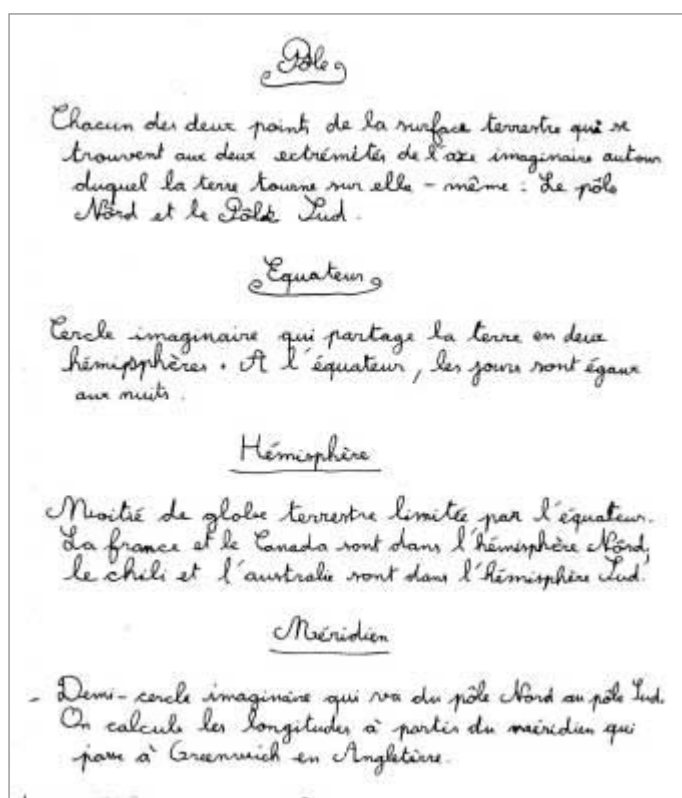 Pôle
Chacun des deux points de la surface terrestre qui se
trouvent aux deux ectrémités de l'axe imaginaire autour
duquel la terre tourne sur elle-même : Le pôle
Nôrd et le Pôle Sud.
Equateur
Cercle imaginaire qui partage la terre en deux
hémipsphères. A l'équateur, les jours sont égaux
aux nuits.
Hémisphère
Moitié de globe terrestre limitée par l'équateur.
La france et le Canada sont dans l'hémisphère Nôrd,
le chili et l'australie sont dans l'hémisphère Sud.
Méridien
- Demi-cercle imaginaire qui va du pôle Nord au pôle Sud.
On calcule les longitudes à partir du méridien qui
passe à Greenwich en Angleterre.